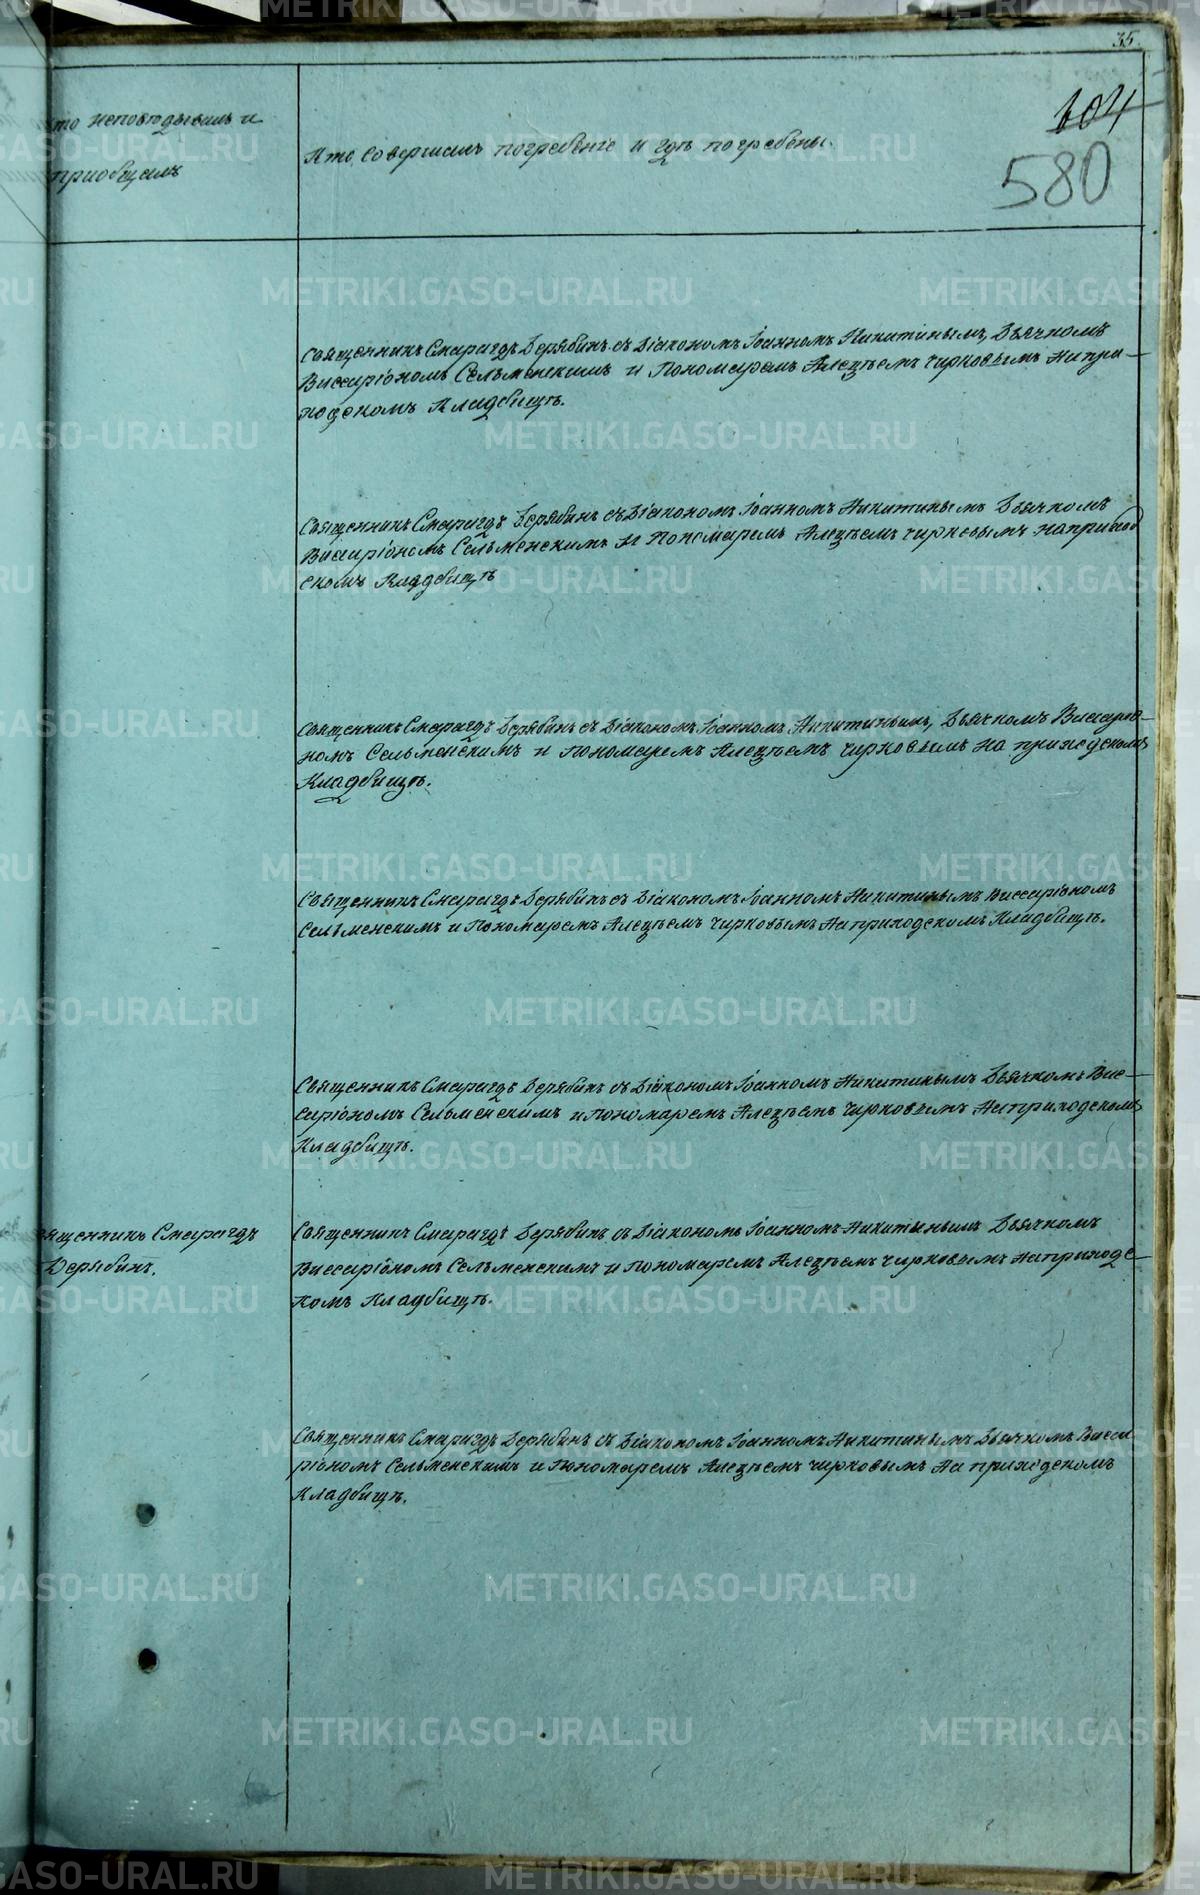 35.
604
580
то исповѣдывалъ и
приобщалъ
Кто совершалъ погребеніе и гдѣ погребены.
Священникъ Смарагдъ Дерябинъ съ Діакономъ Іоанномъ Никитинымъ, Дьячкомъ
Виссаріономъ Сельменскимъ и Пономаремъ Алексѣемъ Чирковымъ На при-
ходскомъ Кладбищѣ.
Священникъ Смарагдъ Дерябинъ съ Діакономъ Іоанномъ Никитинымъ Дьячкомъ
Виссаріономъ Сельменскимъ и Пономаремъ Алексѣемъ Чирковымъ на приход
скомъ Кладбищѣ
Священникъ Смарагдъ Дерябинъ съ Діакономъ Іоанномъ Никитинымъ, Дьячкомъ Виссаріо-
номъ Сельменскимъ и Пономаремъ Алексѣемъ Чирковымъ на приходскомъ
Кладбищѣ.
Священникъ Смарагдъ Дерябинъ съ Діакономъ Іоанномъ Никитинымъ Виссаріономъ
Сельменскимъ и Пономаремъ Алексѣемъ Чирковымъ На приходскомъ Кладбищѣ.
Священникъ Смарагдъ Дерябинъ съ Діакономъ Іоанномъ Никитинымъ Дьячкомъ Вис-
саріономъ Сельменскимъ и Пономаремъ Алексѣемъ Чирковымъ На приходскомъ
Кладбищѣ.
вященникъ Смарагдъ
Дерябинъ.
Священникъ Смарагдъ Дерябинъ съ Діакономъ Іоанномъ Никитинымъ Дьячкомъ
Виссаріономъ Сельменскимъ и Пономаремъ Алексѣемъ Чирковымъ На приходс-
комъ Кладбищѣ.
Священникъ Смарагдъ Дерябинъ съ Діакономъ Іоанномъ Никитинымъ Дьячкомъ Висса
ріономъ Сельменскимъ и Пономаремъ Алексѣемъ Чирковымъ На приходскомъ
Кладбищѣ.